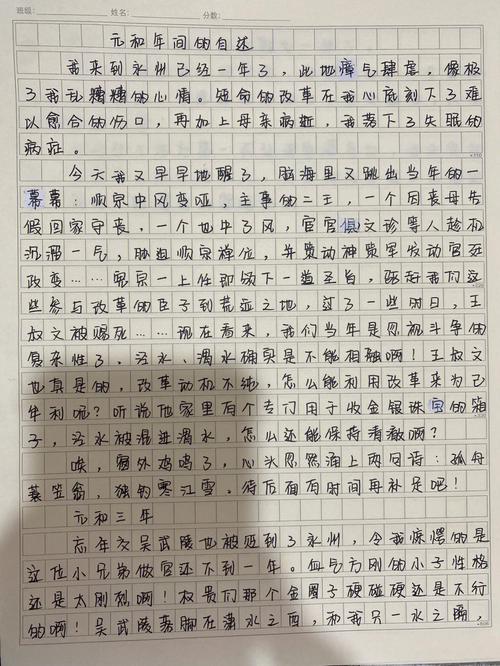 班级: 姓名: 分数:
元和年间的自述
我来到永州已经一年了，此地瘴气肆虐，像极
了我乱糟糟的心情。短命的改革在我心底刻下了难
以愈合的伤口，再加上母亲病逝，我落下了失眠的
病症。
今天我又早早地醒了，脑海里又跳出当年的一
幕幕：顺宗中风变哑，主事的二王，一个因丧母告
假回家守丧，一个也中了风，宦官俱文珍等人趁机
沆瀣一气，胁迫顺宗禅位，并赞动神策军发动宫廷
政变……宪宗一上任即颁下一道圣旨，贬谪我们这
些参与改革的臣子到荒远之地，过了一些时日，王
叔文被赐死……现在看来，我们当年是忽视斗争的
复杂性了，泾水、渭水确实是不能相融啊！王叔文
也真是的，改革动机不纯，怎么能利用改革来为己
牟利呢？听说他家里有个专门用于收金银珠宝的箱
子，泾水被混进渭水，怎么还能保持清澈啊？
唉，窗外鸡鸣了，心头忽然涌上两句诗：孤舟
蓑笠翁，独钓寒江雪。待后面有时间再补足吧！
元和三年
忘年交吴武陵也被贬到了永州，令我惊愕的是
这位小兄弟做官还不到一年。血气方刚的小子性格
还是太刚烈啊！权贵们那个金圈子硬碰硬还是不行
的啊！吴武陵落脚在潇水之西，和我只一水之隔，